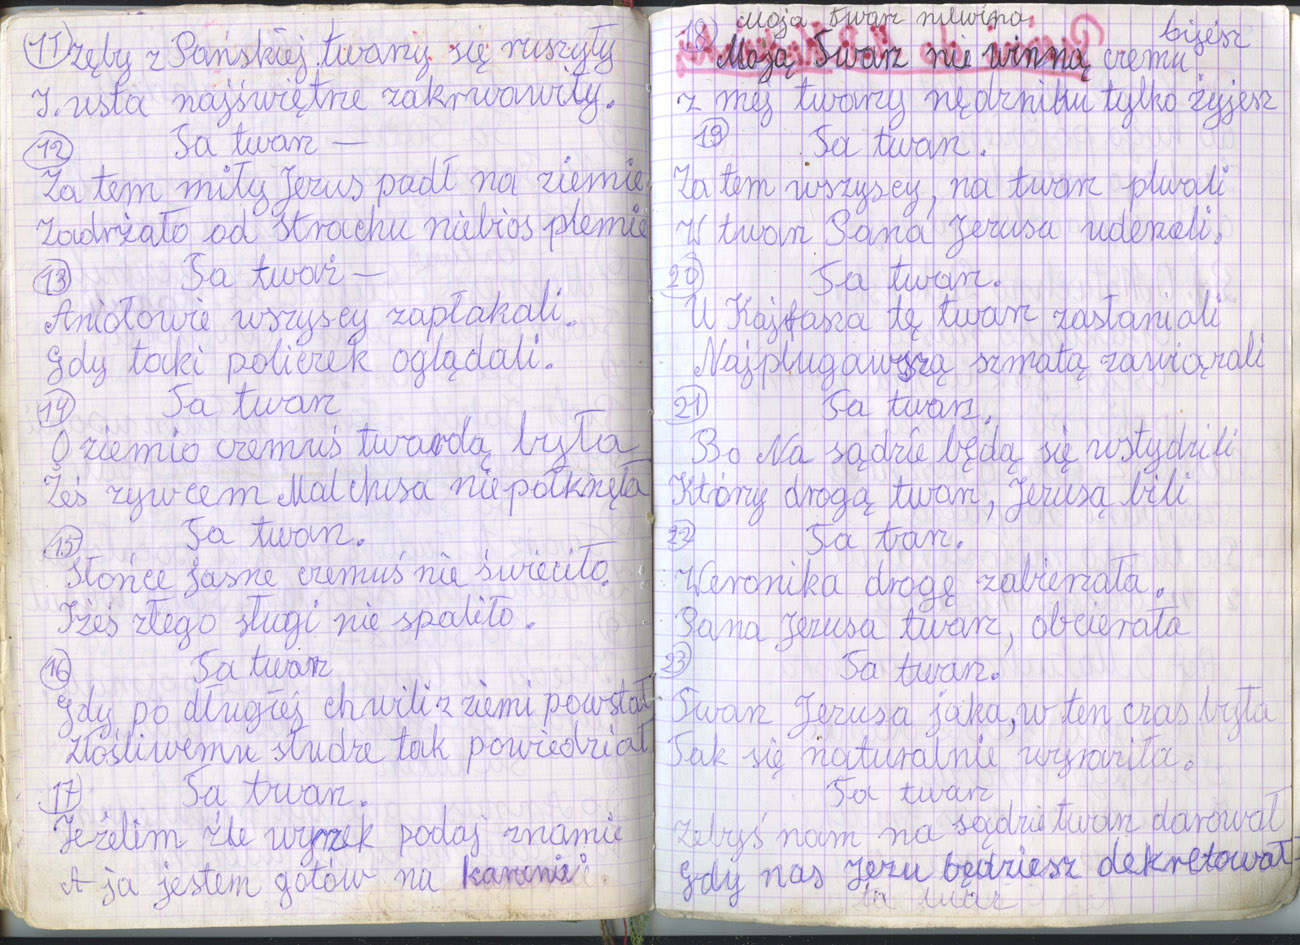 11) zęby z Pańskiej twarzy się ruszyły
I. usta najświętne zakrwawiły.
12) Ta twarz —
Za tem miły Jezus padł na ziemie
Zadrżało od strachu niebios plemie
13) Ta twarz —
Aniołowie wszyscy zapłakali.
Gdy taki policzek oglądali.
14) Ta twarz
O ziemio czemuś twardą była
Żeś żywcem Malchusa nie połknęła
15) Ta twarz.
Słońce jasne czemuś nie świeciło.
Iżeś złego sługi nie spaliło.
16) Ta twarz
Gdy po długiej chwili z ziemi powstał
Złośliwemu słudze tak powiedział
17) Ta twarz.
Jeżelim źle wyrzek podaj znamie
A ja jestem gotów na karanie.
Moja twarz niewina.
18) bijesz
Moją Twarz nie winną czemu
z mej twarzy nędzniku tylko żyjesz
19) Ta twarz.
Za tem wszyscy, na twarz plwali
W twarz Pana Jezusa uderzali.
20) Ta twarz.
U Kajfasza tę twarz zasłaniali
Najplugawszą szmatą zawiązali
21) Ta twarz.
Bo Na sądzie będą się wstydzili
Który drogą twarz, Jezusą bili
22) Ta tarz.
Weronika drogę zabierzała.
Pana Jezusa twarz, obcierała
23) Ta twarz.
Twarz Jezusa jaka, w ten czas była
Tak się naturalnie wyraziła.
Ta twarz
Żebyś nam na sądzie twarz darował
Gdy nas Jezu będziesz dekretował-
ta twarz